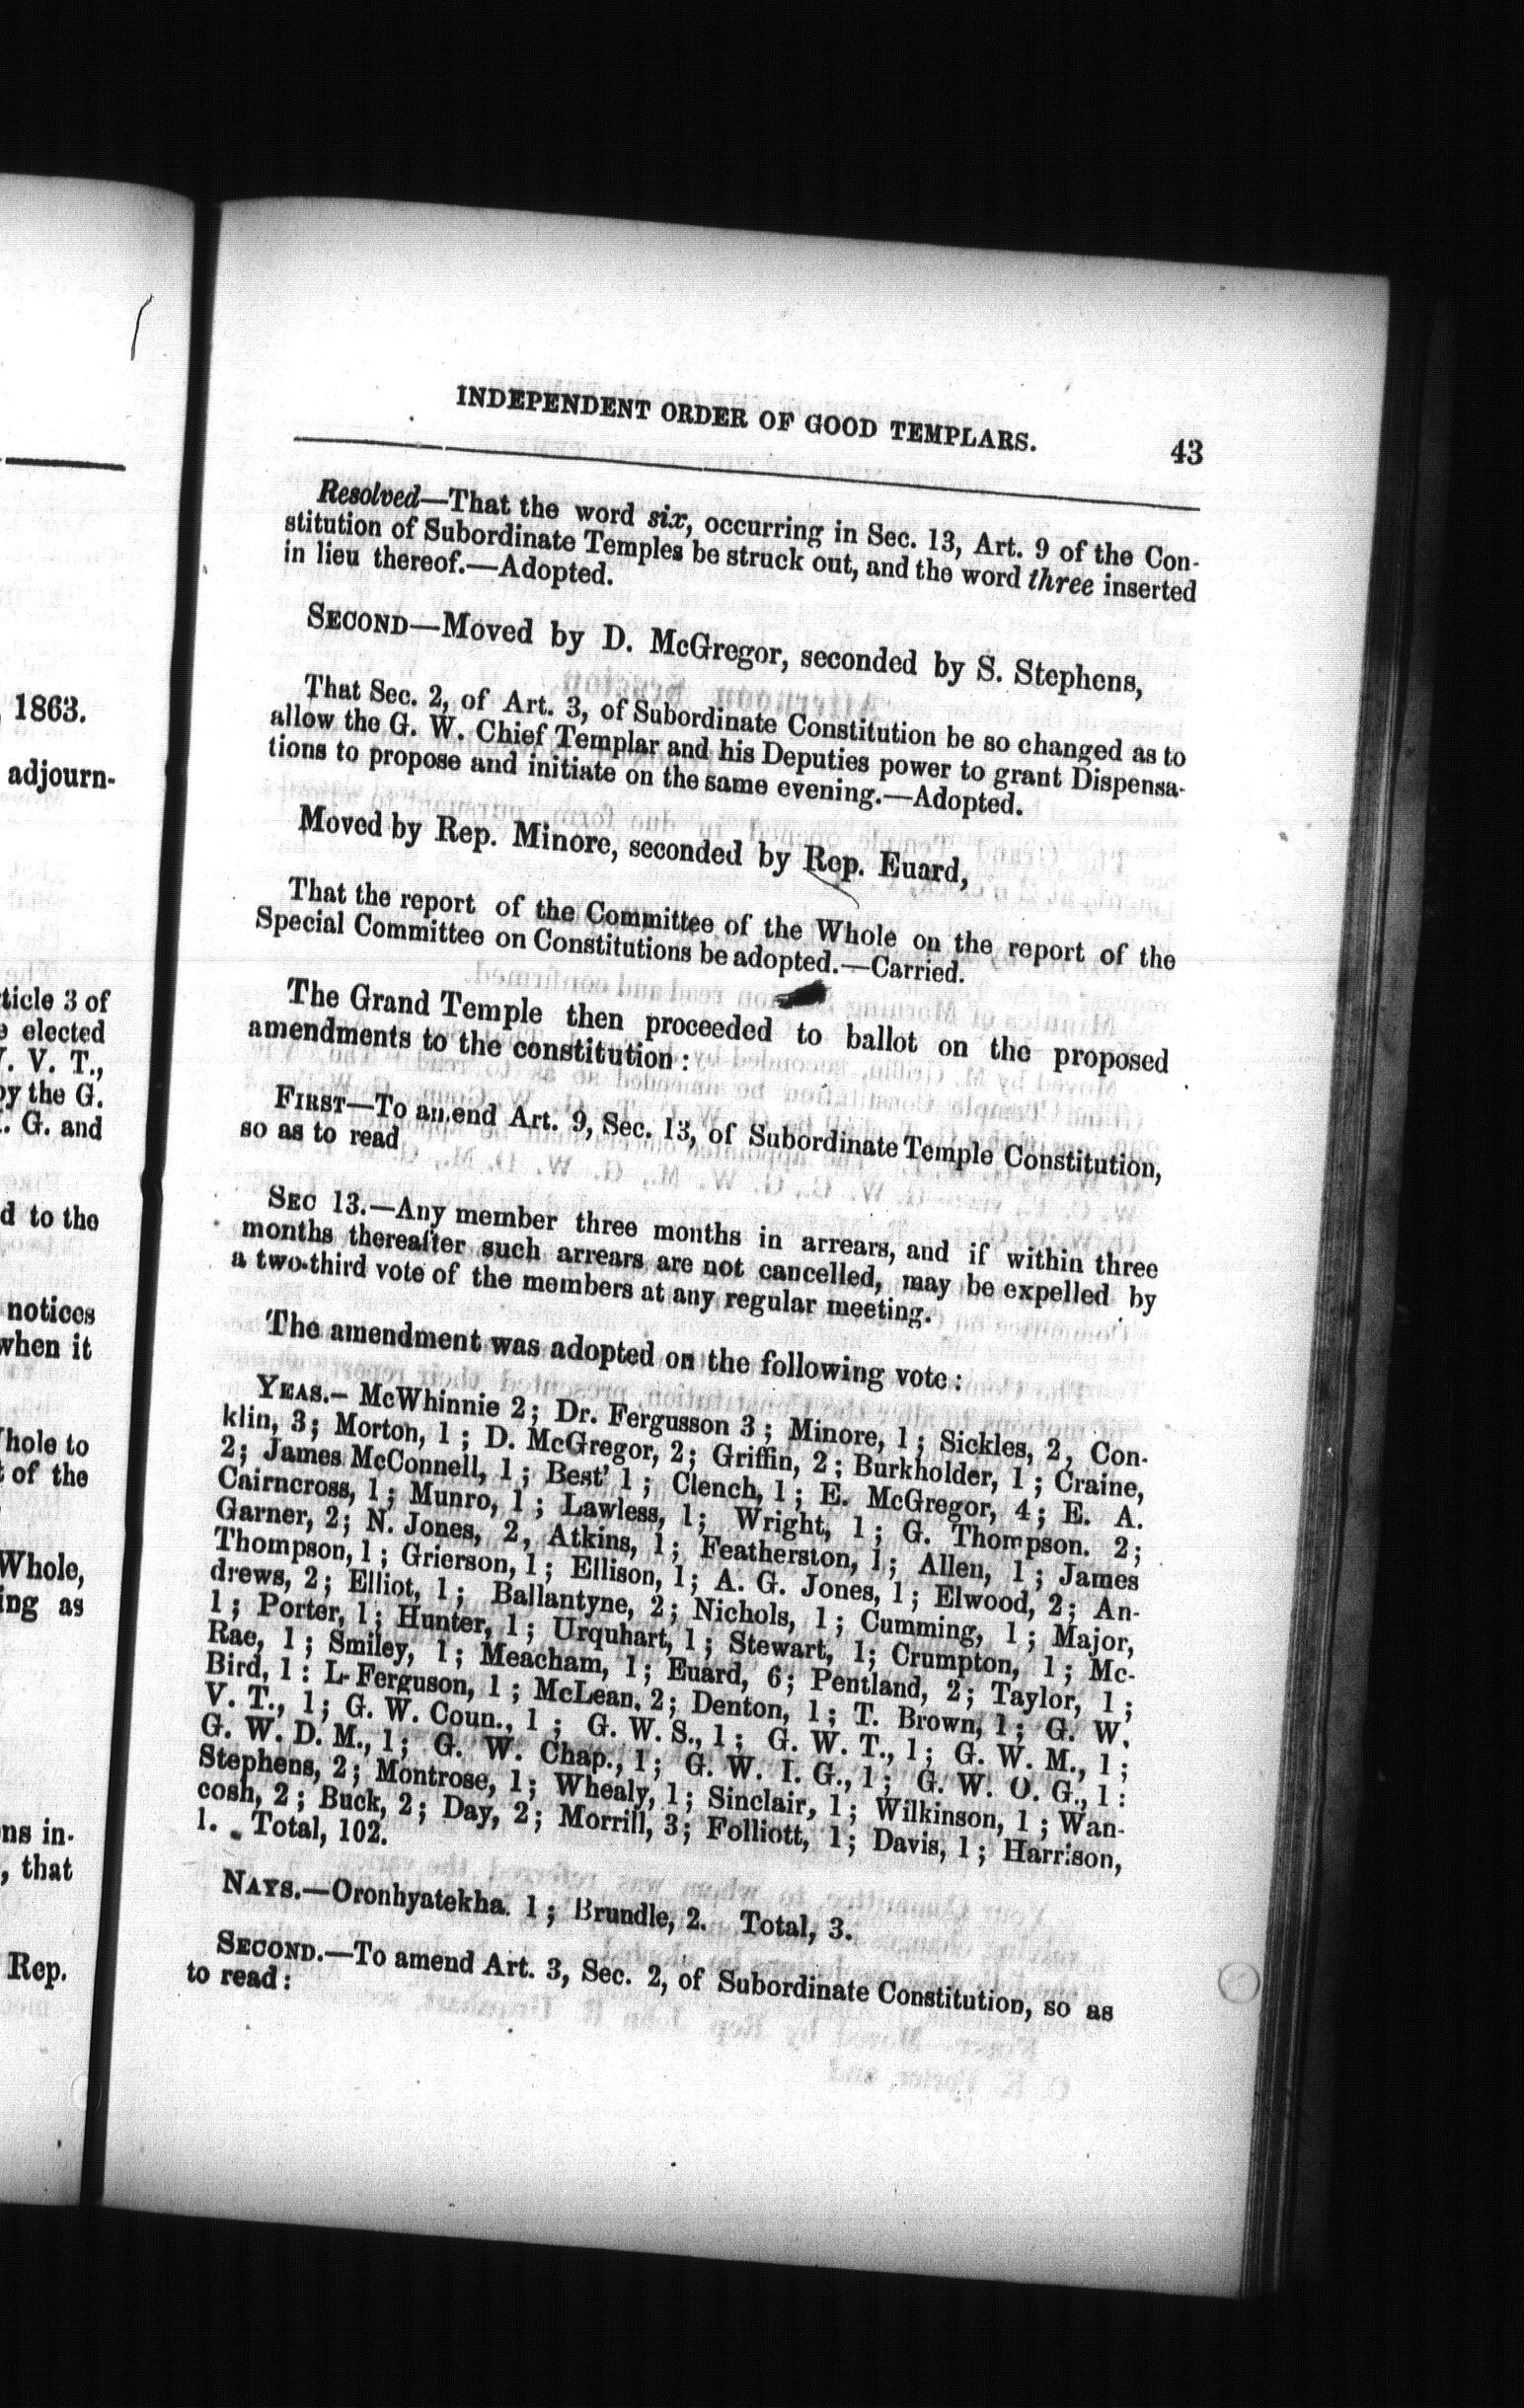 1863.
adjourn-
ticle 3 of
elected
V. T.,
by the G.
G. and
d to the
notices
when it
hole to
of the
Whole,
ing as
ns in-
, that
Rep.
INDEPENDENT ORDER OF GOOD TEMPLARS. 43
Resolved—That the word six, occurring in Sec. 13, Art. 9 of the Con-
stitution of Subordinate Temples be struck out, and the word three inserted
in lieu thereof.—Adopted.
SECOND—Moved by D. McGregor, seconded by S. Stephens,
That Sec. 2, of Art. 3, of Subordinate Constitution be so changed as to
allow the G. W. Chief Templar and his Deputies power to grant Dispensa-
tions to propose and initiate on the same evening.—Adopted.
Moved by Rep. Minore, seconded by Rep. Euard,
That the report of the Committee of the Whole on the report of the
Special Committee on Constitutions be adopted.—Carried.
The Grand Temple then proceeded to ballot on the proposed
amendments to the constitution :
FIRST—To amend Art. 9, Sec. 13, of Subordinate Temple Constitution,
so as to read
SEC 13.—Any member three months in arrears, and if within three
months thereafter such arrears are not cancelled, may be expelled by
a two-third vote of the members at any regular meeting.
The amendment was adopted on the following vote :
YEAS.– McWhinnie 2; Dr. Fergusson 3 ; Minore, 1 ; Sickles, 2, Con-
klin, 3; Morton, 1 ; D. McGregor, 2; Griffin, 2 ; Burkholder, 1 ; Craine,
2; James McConnell, 1 ; Best' 1 ; Clench, 1 ; E. McGregor, 4 ; E. A.
Cairncross, 1 ; Munro, 1 ; Lawless, 1; Wright, 1 ; G. Thompson. 2;
Garner, 2; N. Jones, 2, Atkins, 1; Featherston, 1; Allen, 1 ; James
Thompson, 1 ; Grierson, 1 ; Ellison, 1; A. G. Jones, 1 ; Elwood, 2; An-
drews, 2; Elliot, 1; Ballantyne, 2; Nichols, 1 ; Cumming, 1 ; Major,
1 ; Porter, 1; Hunter, 1 ; Urquhart, 1 ; Stewart, 1; Crumpton, 1 ; Mc-
Rae, 1 ; Smiley, 1; Meacham, 1; Euard, 6; Pentland, 2; Taylor, 1 ;
Bird, 1 : L. Ferguson, 1 ; McLean. 2; Denton, 1; T. Brown, 1 ; G. W.
V. T., 1; G. W. Coun., 1 ; G. W. S., 1 ; G. W. T., 1; G. W. M., 1 ;
G. W. D. M., 1; G. W. Chap., 1; G. W. I. G., 1; G. W. O. G., 1 :
Stephens, 2; Montrose, 1; Whealy, 1; Sinclair, 1; Wilkinson, 1 ; Wan-
cosh, 2 ; Buck, 2; Day, 2; Morrill, 3; Folliott, 1; Davis, 1 ; Harrison,
1. Total, 102.
NAYS.—Oronhyatekha. 1 ; Brundle, 2. Total, 3.
SECOND.—To amend Art. 3, Sec. 2, of Subordinate Constitution, so as
to read :